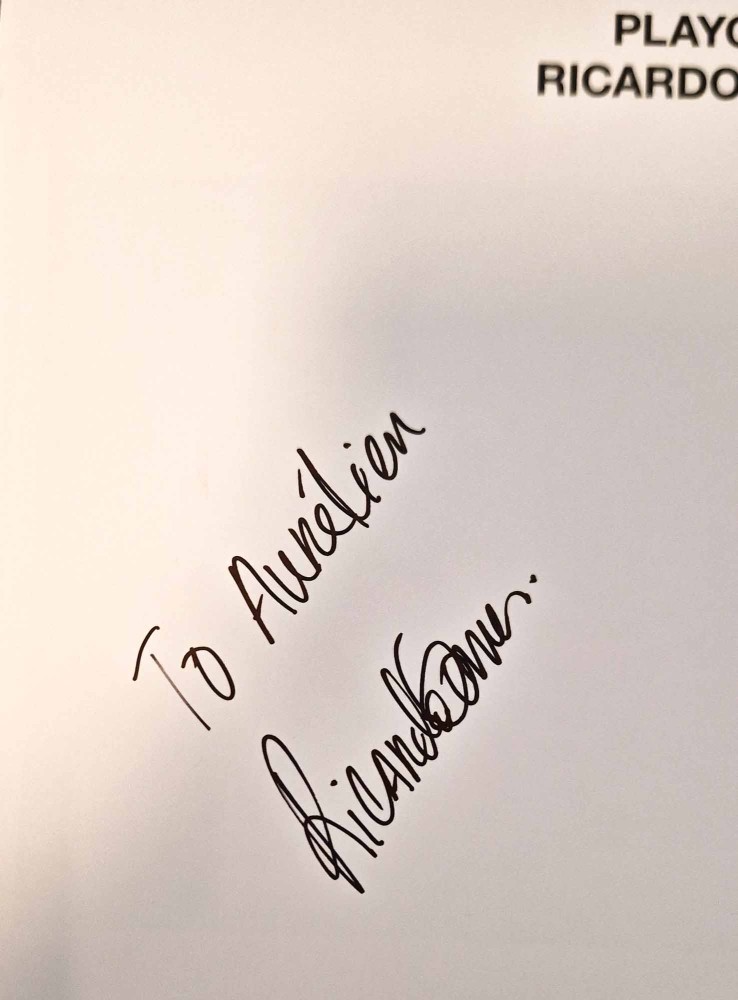 PLAYG
RICARDO
To Aurélien
Ricardo